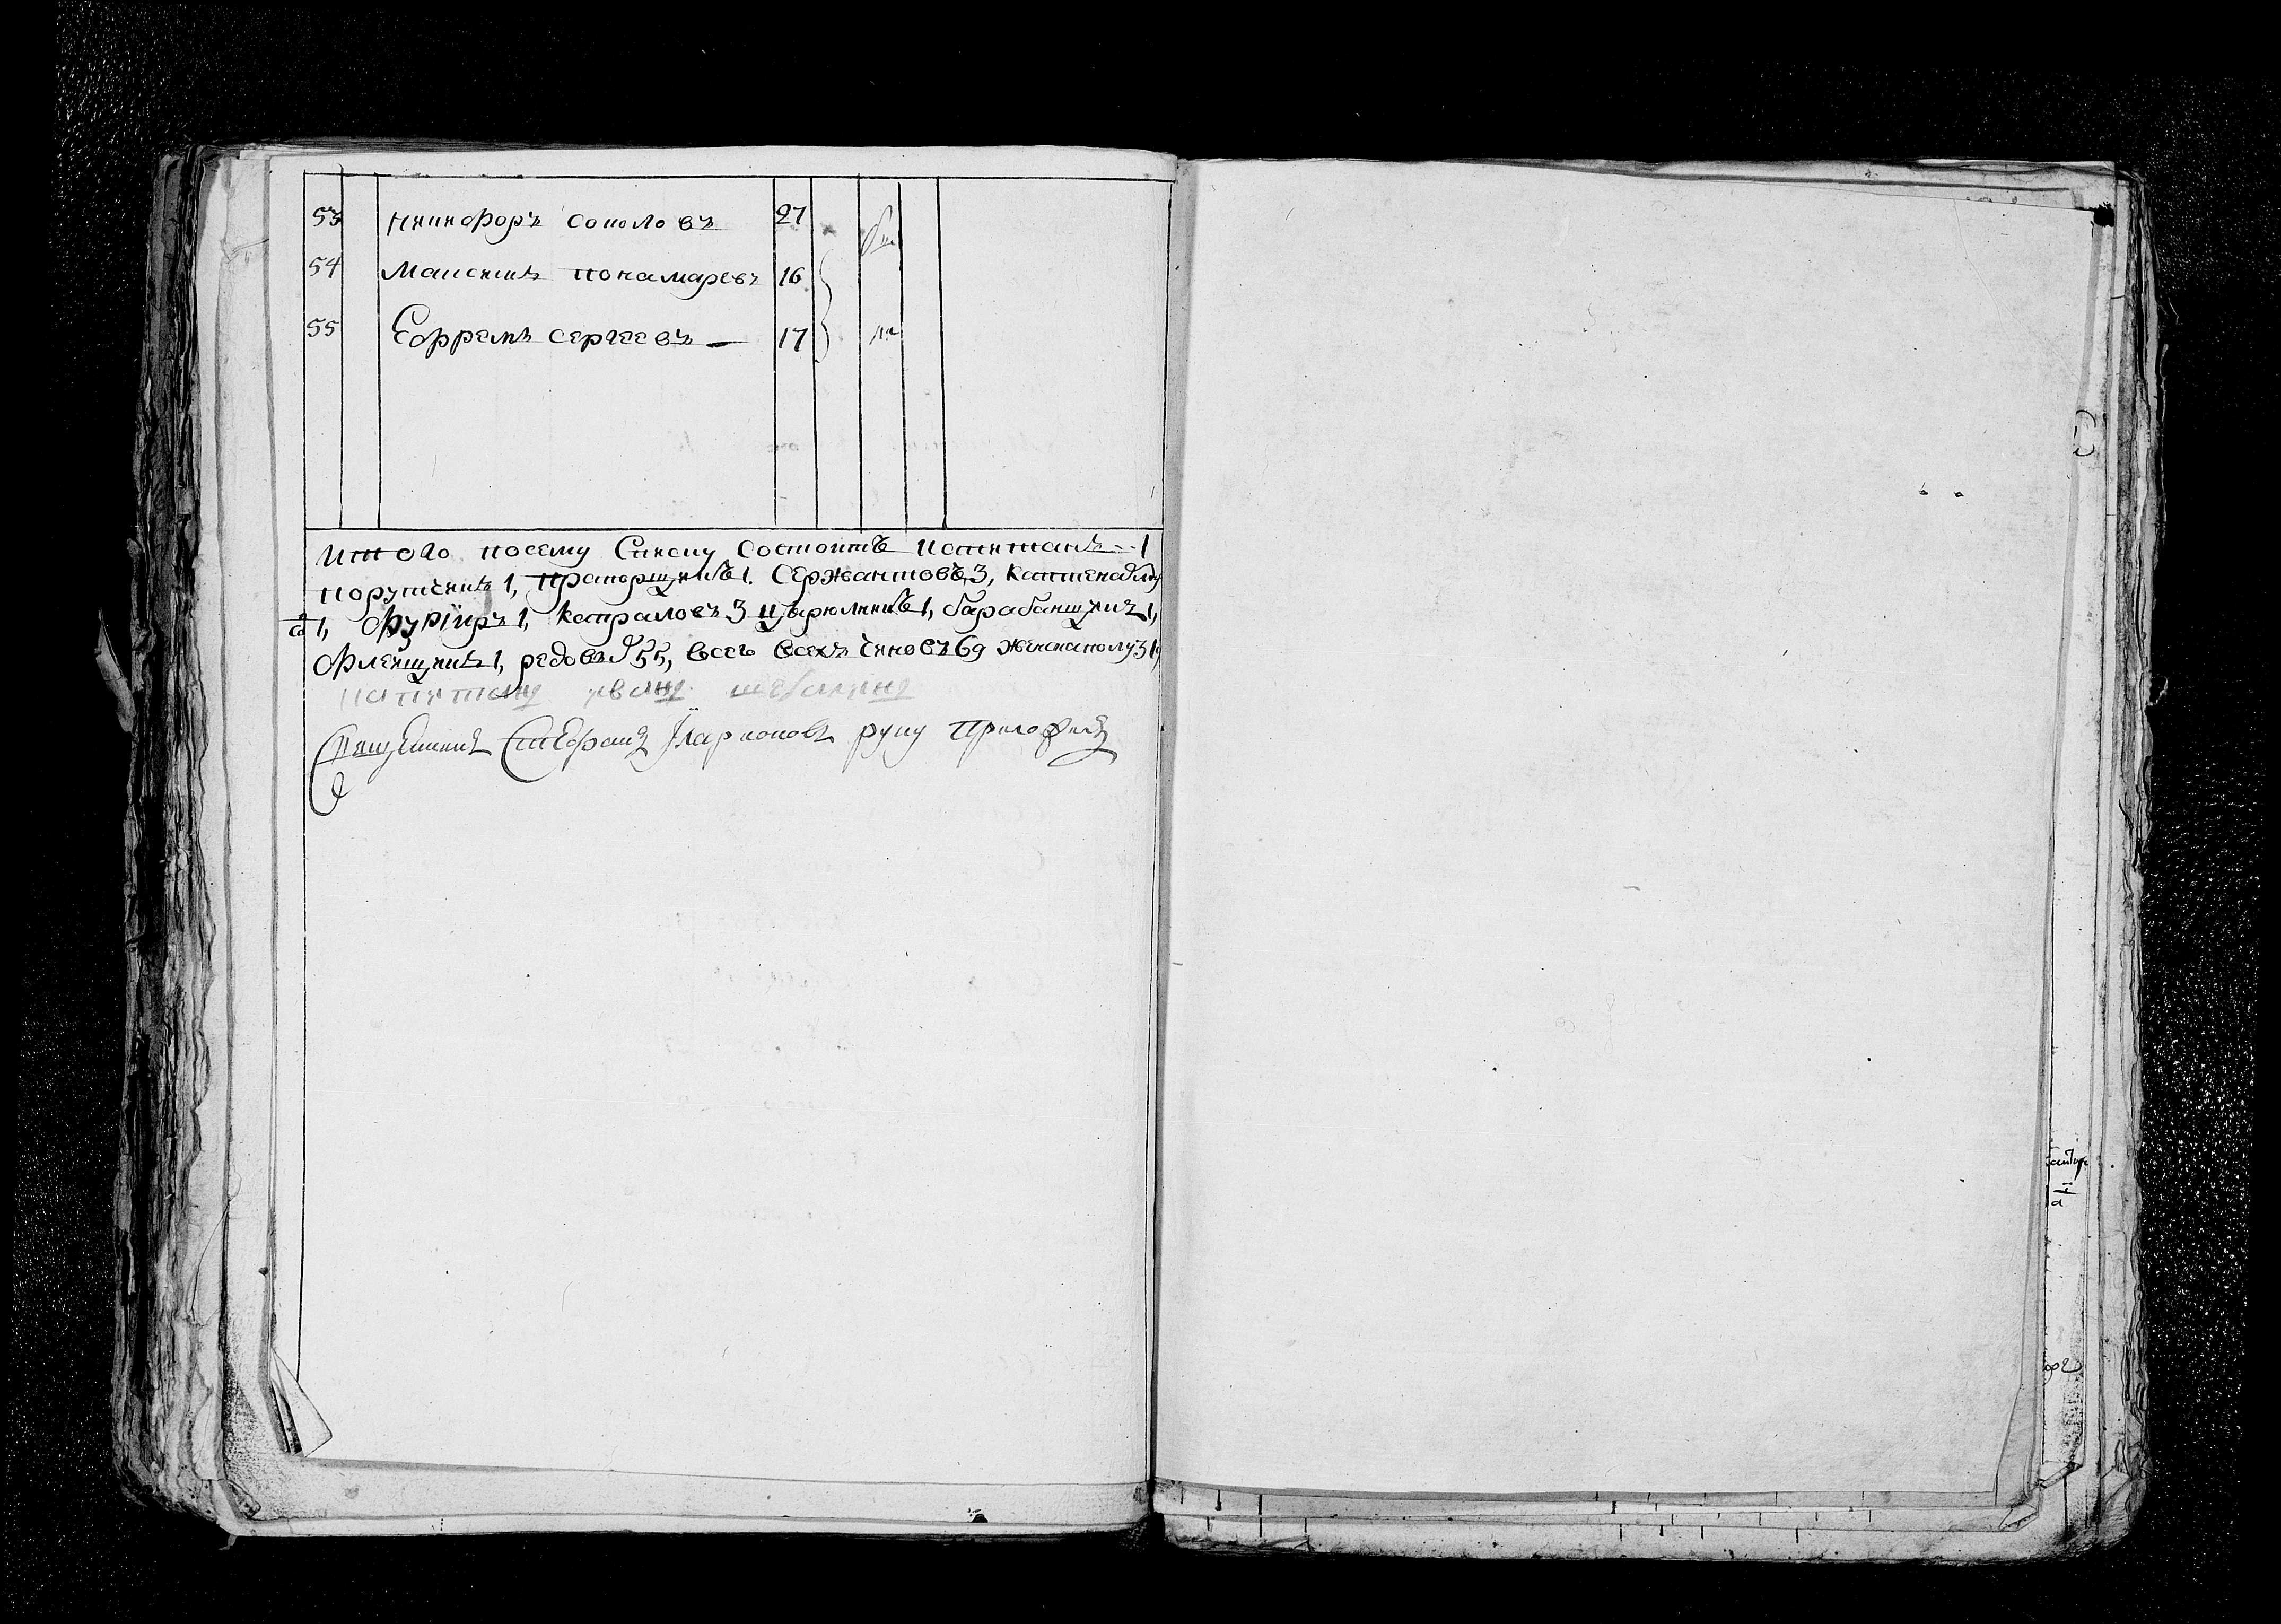 53 Никифоръ Соколовъ 27
54 Максимъ Понамаревъ 16
55 Ефремъ Сергеевъ — 17
Итого посему Списку Состоитъ Капитанъ - 1
порутчикъ 1, прапорщикъ 1. Сержантовъ 3, каптенармус
1, Фуриѣръ 1, капраловъ 3 цырюликъ 1, барабанщикъ 1,
Флейщикъ 1, редовы 55, всего всехъ чиновъ 69 женска полу 31,
капитанъ иванъ
Священникъ Стефанъ Иларионовъ руку приложилъ